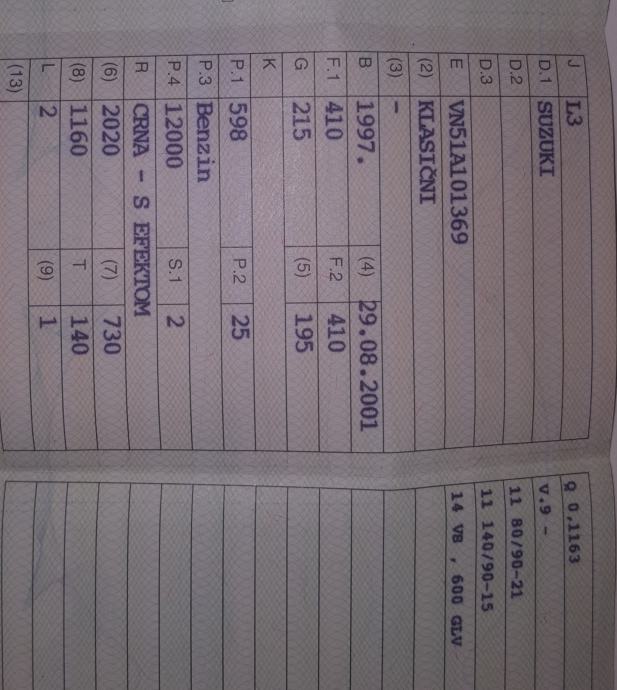 J L3
D.1 SUZUKI
D.2
D.3
E VN51A101369
(2) KLASIČNI
(3) -
B 1997. (4) 29.08.2001
F.1 410 F.2 410
G 215 (5) 195
K
P.1 598 P.2 25
P.3 Benzin
P.4 12000 S.1 2
R CRNA - S EFEKTOM
(6) 2020 (7) 730
(8) 1160 T 140
L 2 (9) 1
(13)
Q 0,1163
V.9 -
11 80/90-21
11 140/90-15
14 VB , 600 GLV